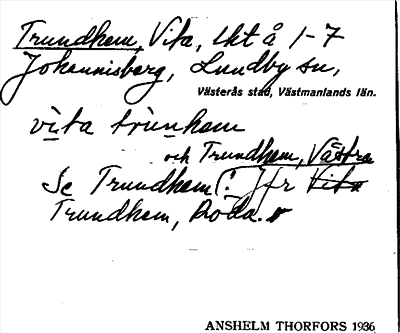 Trundhem, Vita, lht å 1-7
Johannisberg, Lundby sn,
Västerås stad, Västmanlands län.
vita trunhem
och Trundhem, Västra
Se Trundhem! Jfr Vita
Trundhem, Röda.
ANSHELM THORFORS 1936